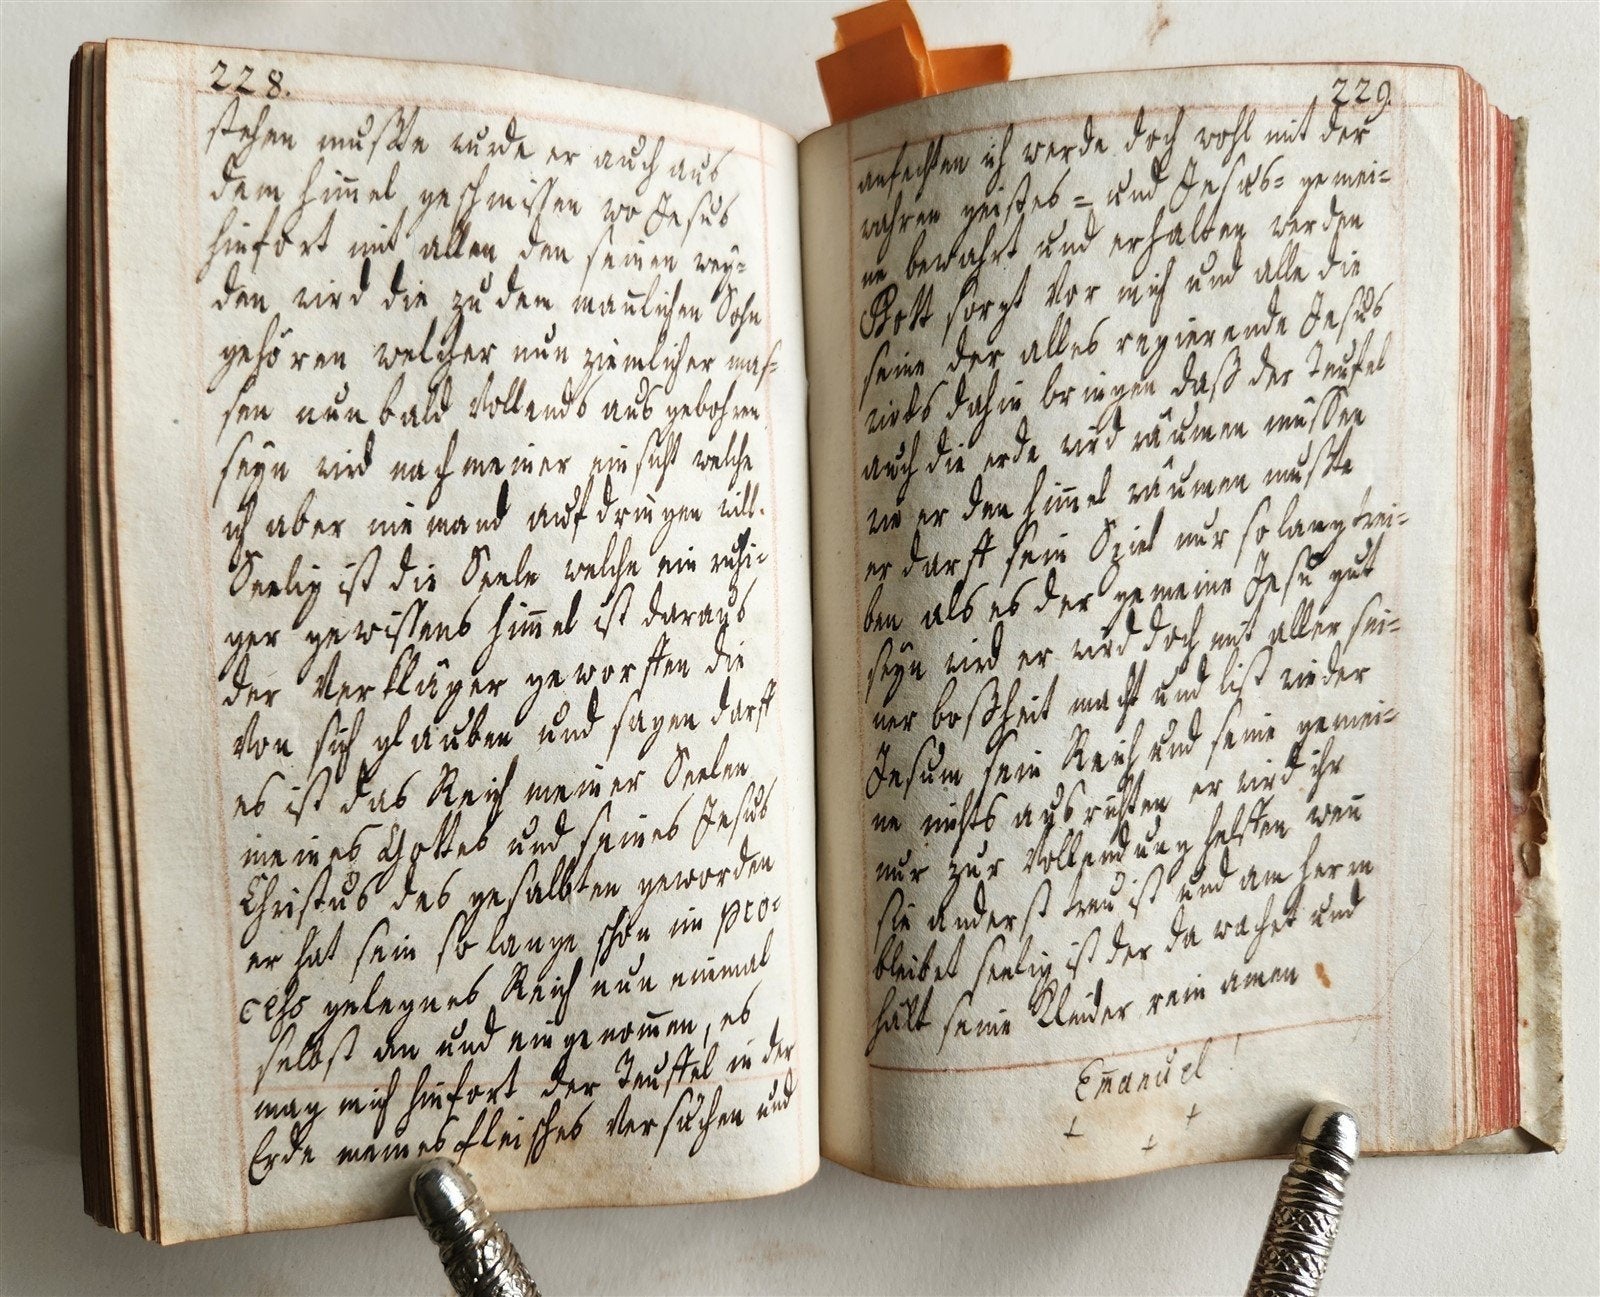 228.
stehen muste wurde er auch aus
dem himel geschmissen wo Jesus
hinfort mit allen den seinen wey=
den wird die zu dem mänlichen Sohn
gehören welcher nun ziemlicher mas=
sen nun bald Vollends aus gebohren
seyn wird nach meiner einsicht welche
ich aber niemand auf dringen will.
Seelig ist die Seele welche ein ruhi=
ger gewissens himel ist daraus
der Verkläger geworffen die
Von sich glauben und sagen darff
es ist das Reich meiner Seelen
meines Gottes und seines Jesus
Christus des gesalbten geworden
er hat sein so lange schon im pro=
cess gelegnes Reich nun einmal
selbst an und eingenomen, es
mag mich hinfort der Teuffel in der
Erde meines fleisches Versuchen und
229
anfechten ich werde doch wohl mit der
wahren geistes= und Jesus= gemei=
ne bewahrt und erhalten werden
Gott sorgt Vor mich und alle die
seine der alles regierende Jesus
wirds dahin bringen daß der Teufel
auch die erde wird räumen müssen
wie er den himel räumen muste
er darff sein Spiel nur so lang trei=
ben als es der gemeine Jesu gut
seyn wird er wird doch mit aller sei=
ner boßheit macht und list wieder
Jesum sein Reich und seine gemei=
ne nichts ausrichten er wird ihr
nur zur Vollendung helffen wen
sie anderst treu ist und am herrn
bleibet seelig ist der da wachet und
hält seine Kleider rein amen
Emanuel!